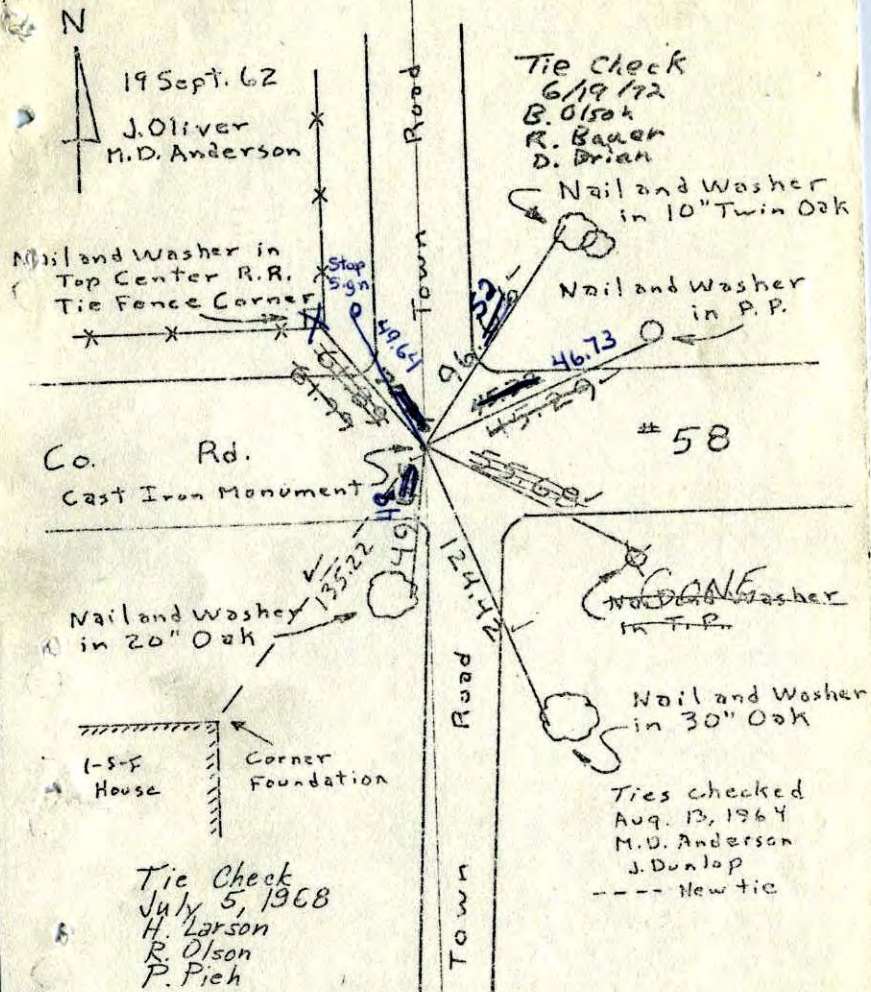 N
19 Sept. 62
J. Oliver
M.D. Anderson
Tie Check
6/19/72
B. Olson
R. Bauer
D. Brian
Nail and Washer
in 10" Twin Oak
Nail and Washer in
Top Center R.R.
Tie Fence Corner
Stop
Sign
Town Road
Nail and Washer
in P.P.
49.64
96.
52
46.73
45.29
61.39
Co. Rd. # 58
Cast Iron Monument
55.68
49
135.22
124.42
GONE
Nail and Washer
in T.P.
Nail and Washer
in 20" Oak
Nail and Washer
in 30" Oak
1-S-F
House
Corner
Foundation
Town Road
Ties checked
Aug. 13, 1964
M.D. Anderson
J. Dunlop
---- New tie
Tie Check
July 5, 1968
H. Larson
R. Olson
P. Pieh